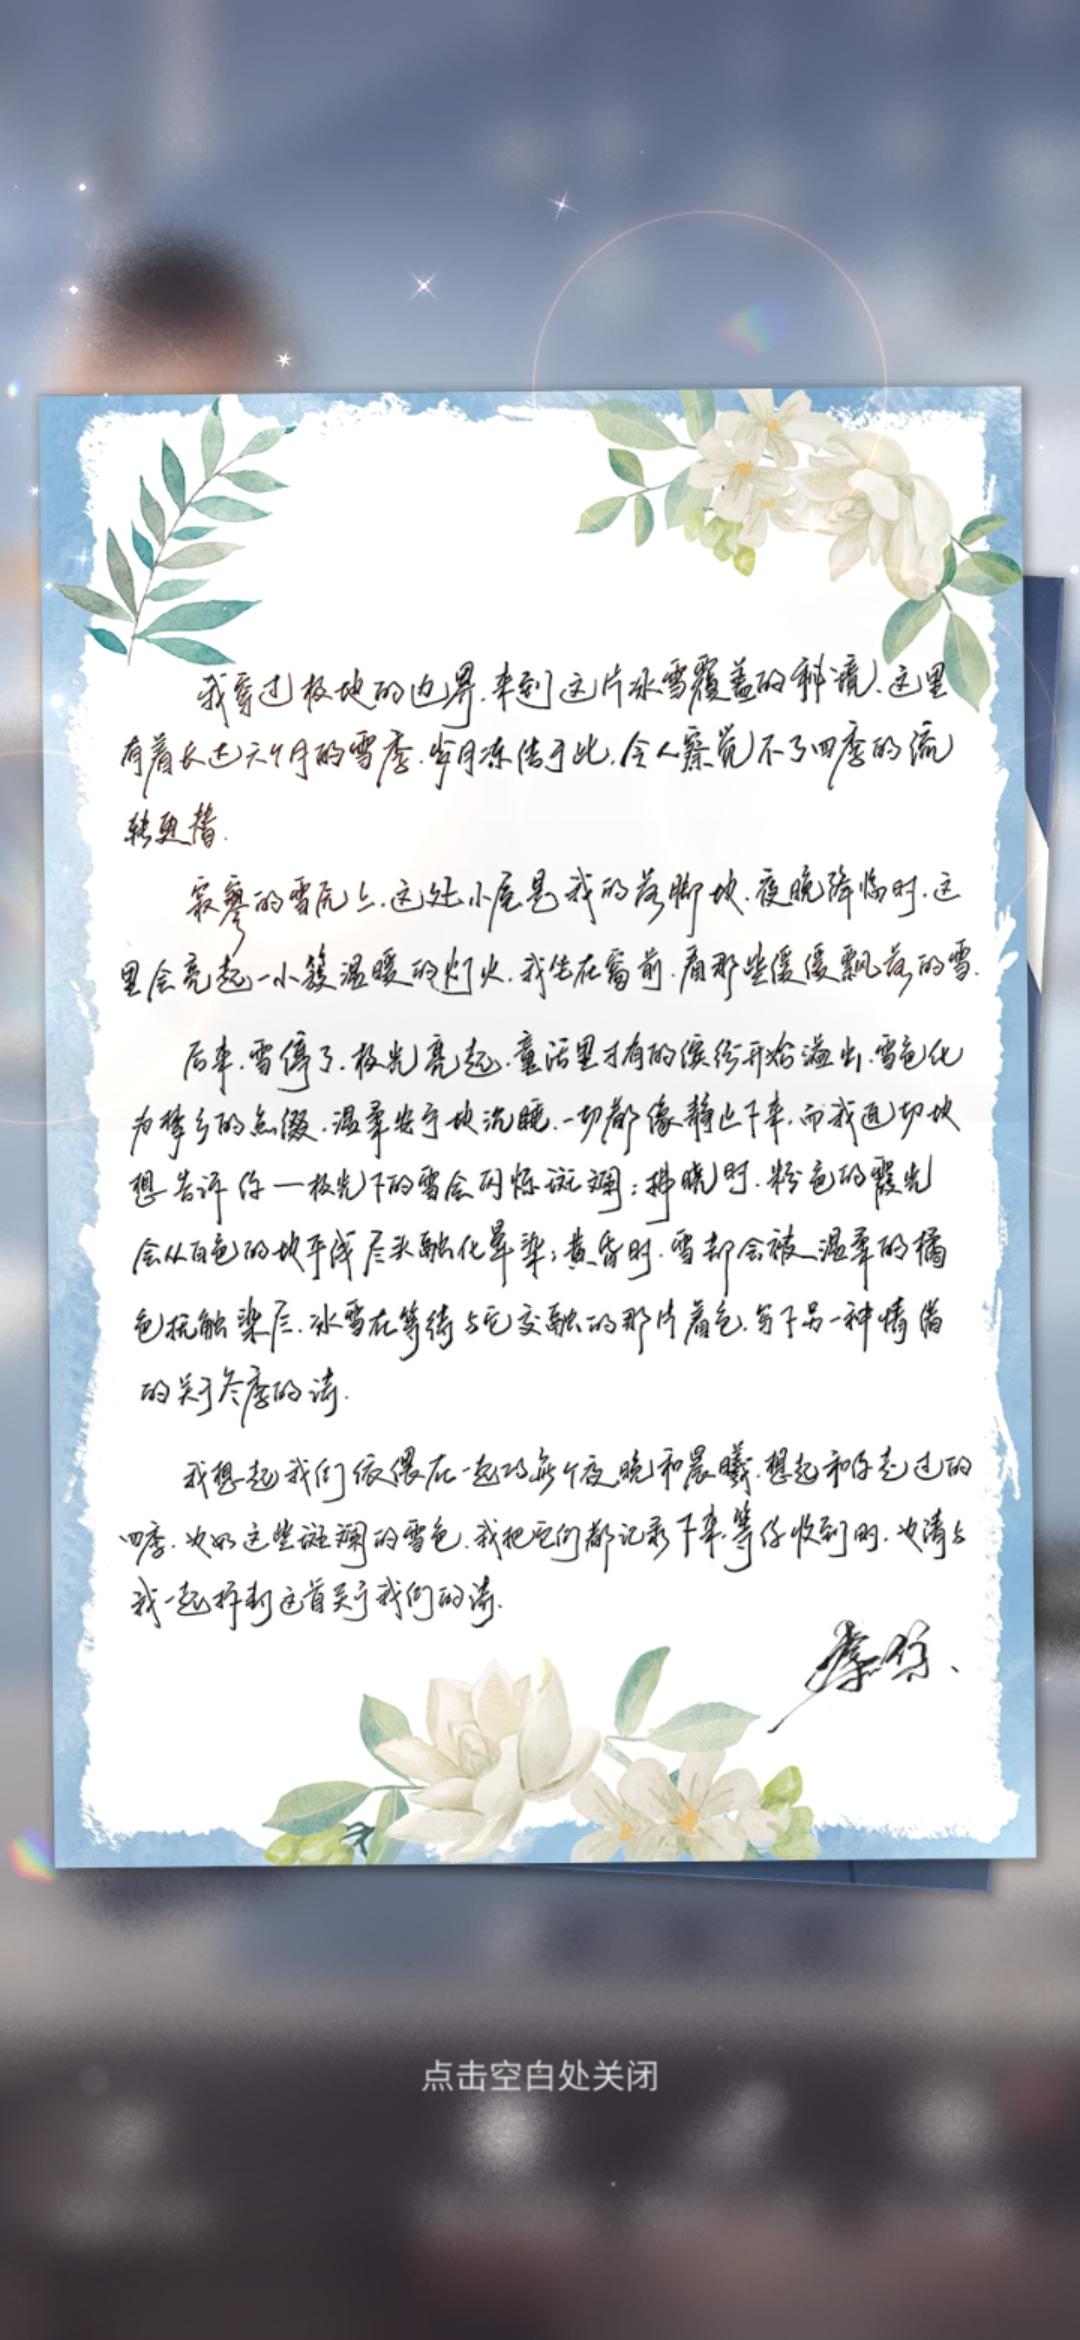 我穿过极地的边界，来到这片冰雪覆盖的秘境，这里
有着长达六个月的雪季，岁月冻结于此，令人察觉不了四季的流
转更替。
寂寥的雪原上，这处小屋是我的落脚地，夜晚降临时，这
里会亮起一小簇温暖的灯火，我坐在窗前，看那些缓缓飘落的雪。
后来，雪停了，极光亮起，童话里才有的缤纷开始溢出，雪色化
为梦乡的点缀，温柔安宁地沉睡，一切都像静止下来，而我迫切地
想告诉你—极光下的雪会闪烁斑斓；拂晓时，粉色的霞光
会从白色的地平线尽头融化晕染；黄昏时，雪却会被温柔的橘
色抚触染尽，冰雪在等待与它交融的那片着色，写下另一种情深
的关于冬季的诗。
我想起我们依偎在一起的每个夜晚和晨曦，想起和你走过的
四季，也如这些斑斓的雪色，我把它们都记录下来，等你收到时，也请与
我一起拆封这首关于我们的诗。
点击空白处关闭